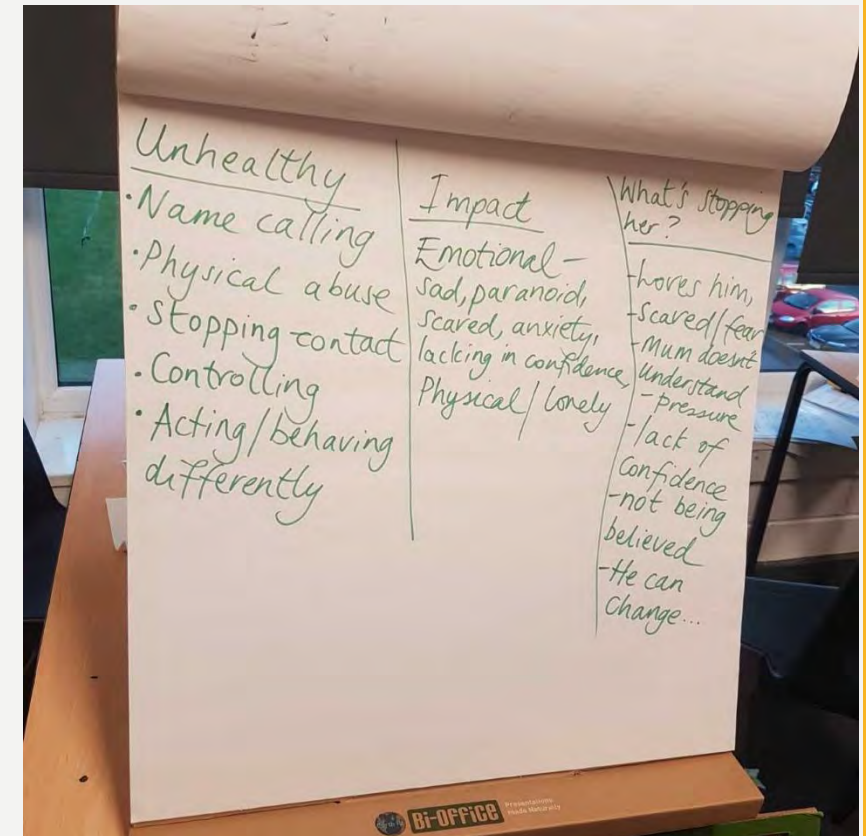 Unhealthy
·Name calling
·Physical abuse
·Stopping contact
·Controlling
·Acting/behaving
differently
Impact
Emotional –
sad, paranoid,
scared, anxiety,
lacking in confidence
Physical / lonely
What's stopping
her?
-Loves him,
-scared/fear
-Mum doesn't
understand
- pressure
-lack of
confidence
-not being
believed
-He can
change...
Bi-OFFiCE
Presentations
made Naturally